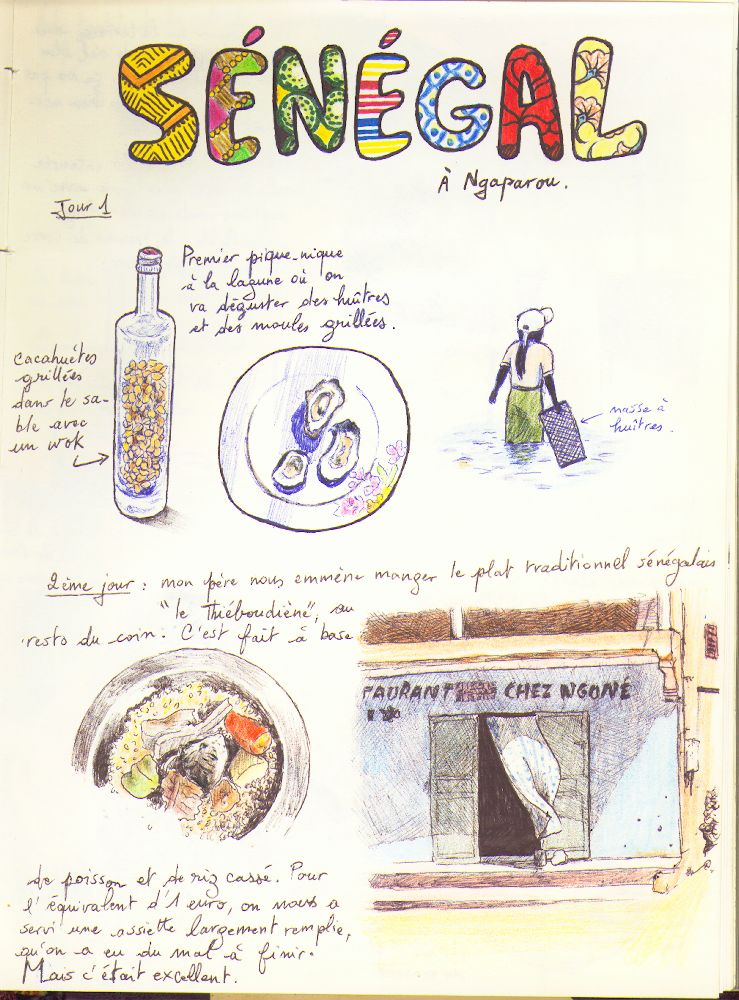 SÉNÉGAL
À Ngaparou.
Jour 1
Premier pique-nique
à la lagune où on
va déguster des huîtres
et des moules grillées.
cacahuètes
grillées
dans le sa-
ble avec
un wok
nasse à
huîtres.
2ème jour : mon père nous emmène manger le plat traditionnel sénégalais
"le Thiéboudiène", au
resto du coin. C'est fait à base
TAURANT CHEZ NGONÉ
de poisson et de riz cassé. Pour
l'équivalent d'1 euro, on nous a
servi une assiette largement remplie,
qu'on a eu du mal à finir.
Mais c'était excellent.